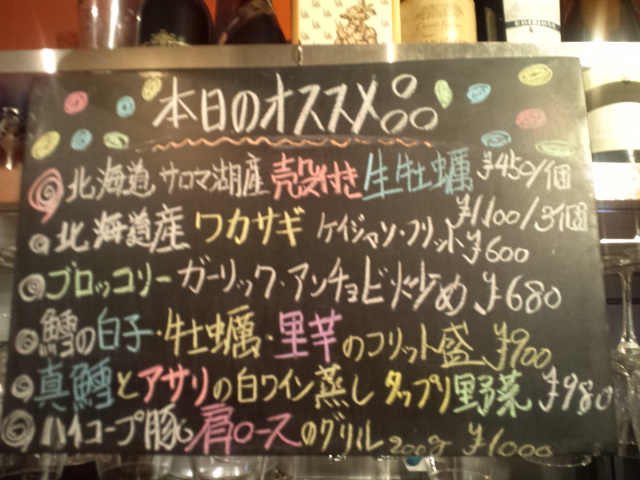 本日のオススメ
北海道 サロマ湖産 殻付き 生牡蠣 ¥450/1個
¥1100/3個
北海道産 ワカサギ ケイジャン・フリット ¥600
ブロッコリー ガーリック・アンチョビ炒め ¥680
鱈の白子・牡蠣・里芋のフリット盛 ¥900
真鱈とアサリの白ワイン蒸し タップリ野菜 ¥980
ハイコープ豚 肩ロースのグリル 200g ¥1000